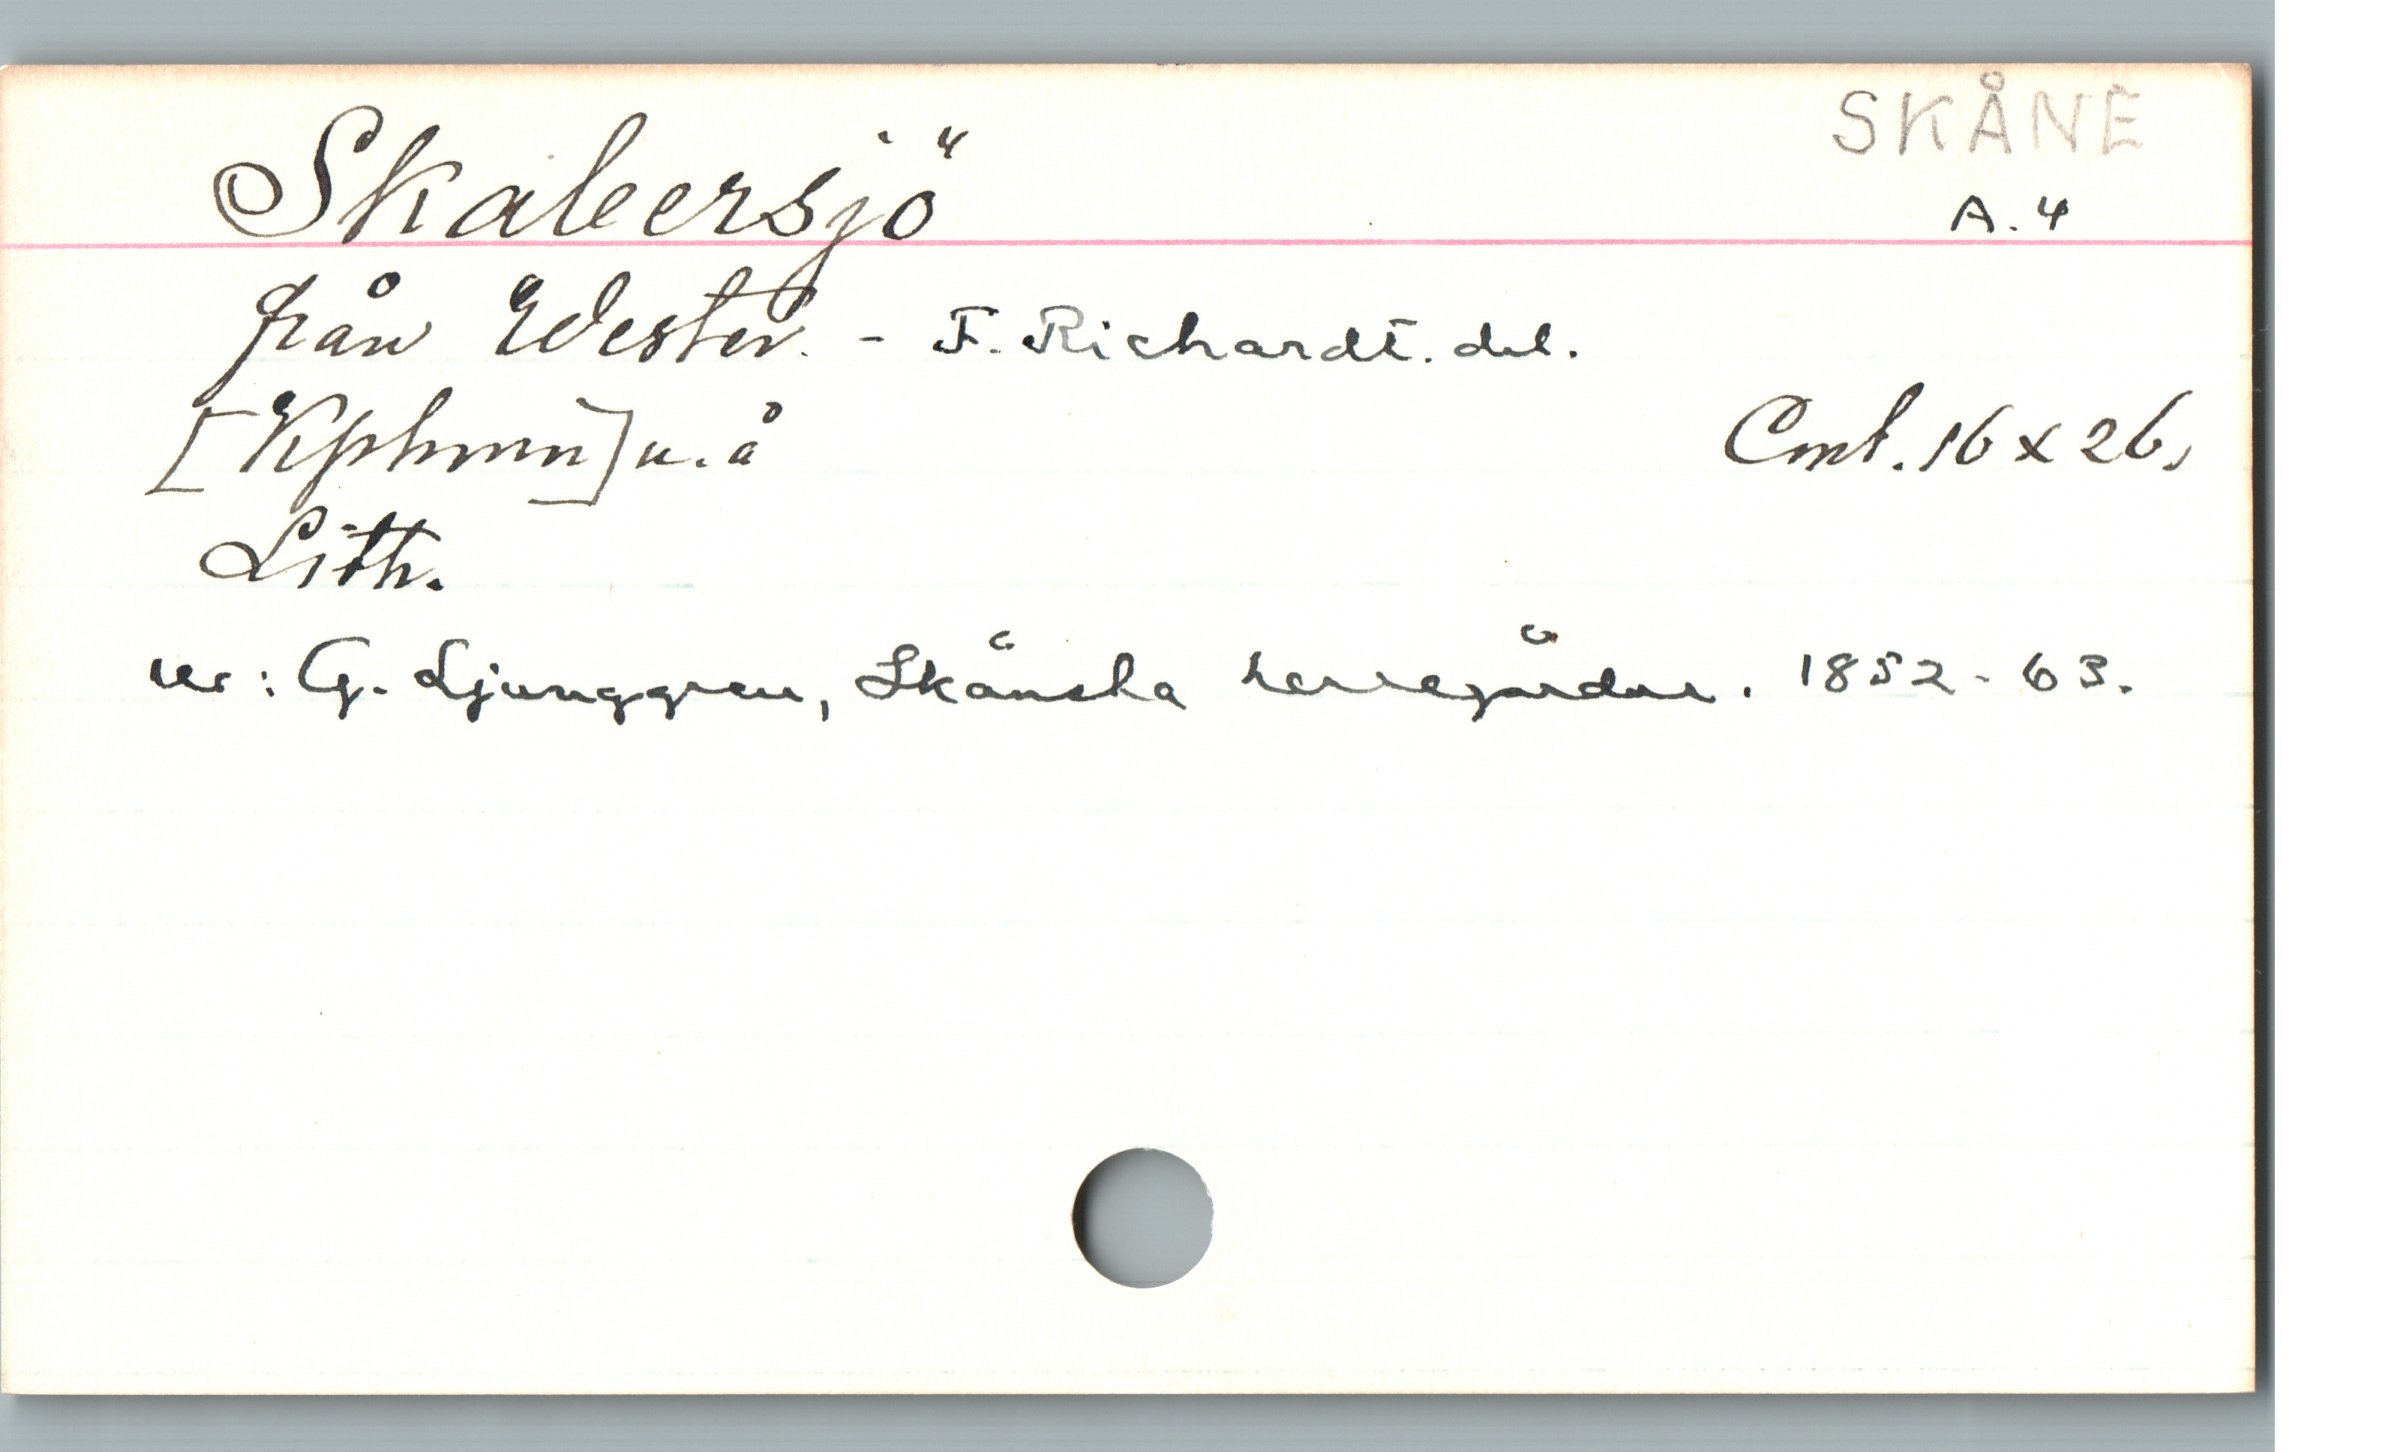 SKÅNE
Skabersjö A.4
från Wester. - F. Richardt. del.
[Kphmn] u. å Cmt. 16 x 26.
Lith.
ur: G. Ljunggren, Skånska herregårdar. 1852-63.